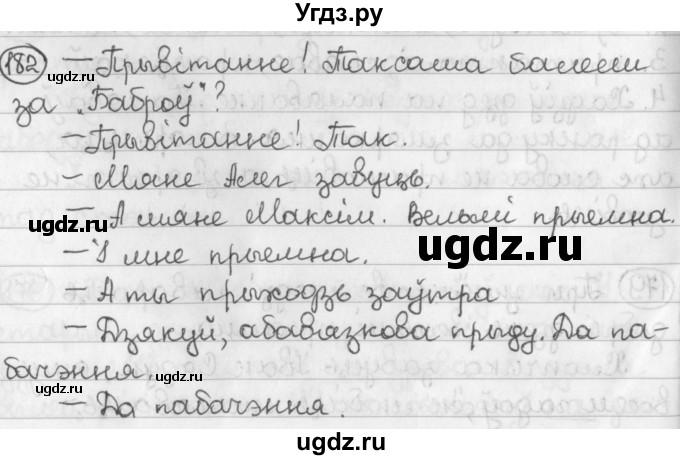 Угдз.ру
182 – Прывітанне! Таксама балееш
за „Баброў"?
– Прывітанне! Так.
– Мяне Алег завуць.
– А мяне Максім. Вельмі прыемна.
– І мне прыемна.
– А ты прыходзь заўтра
– Дзякуй, абавязкова прыду. Да па-
бачэння.
– Да пабачэння.
ugdz.ru
ugdz.ru
ugdz.ru
ugdz.ru
ugdz.ru
ugdz.ru
ugdz.ru
ugdz.ru
ugdz.ru